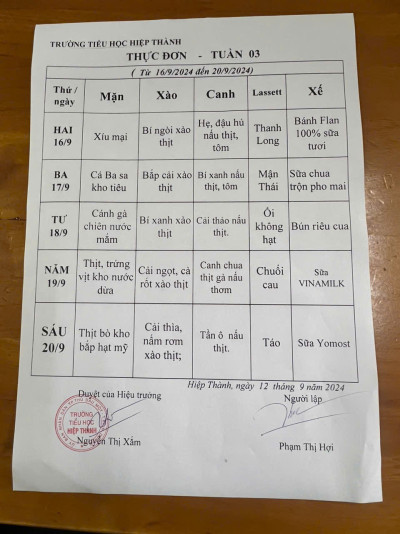 TRƯỜNG TIỂU HỌC HIỆP THÀNH
THỰC ĐƠN - TUẦN 03
( Từ 16/9/2024 đến 20/9/2024)
Thứ / ngày | Mặn | Xào | Canh | Lassett | Xế
HAI 16/9 | Xíu mại | Bí ngòi xào thịt | Hẹ, đậu hủ nấu thịt, tôm | Thanh Long | Bánh Flan 100% sữa tươi
BA 17/9 | Cá Ba sa kho tiêu | Bắp cải xào thịt | Bí xanh nấu thịt, tôm | Mận Thái | Sữa chua trộn pho mai
TƯ 18/9 | Cánh gà chiên nước mắm | Bí xanh xào thịt | Cải thảo nấu thịt. | Ổi không hạt | Bún riêu cua
NĂM 19/9 | Thịt, trứng vịt kho nước dừa | Cải ngọt, cà rốt xào thịt | Canh chua thịt gà nấu thơm | Chuối cau | Sữa VINAMILK
SÁU 20/9 | Thịt bò kho bắp hạt mỹ | Cải thìa, nấm rơm xào thịt; | Tần ô nấu thịt. | Táo | Sữa Yomost
Hiệp Thành, ngày 12 tháng 9 năm 2024
Duyệt của Hiệu trưởng
Người lập
TRƯỜNG
TIỂU HỌC
HIỆP THÀNH
Nguyễn Thị Xắm
Phạm Thị Hợi